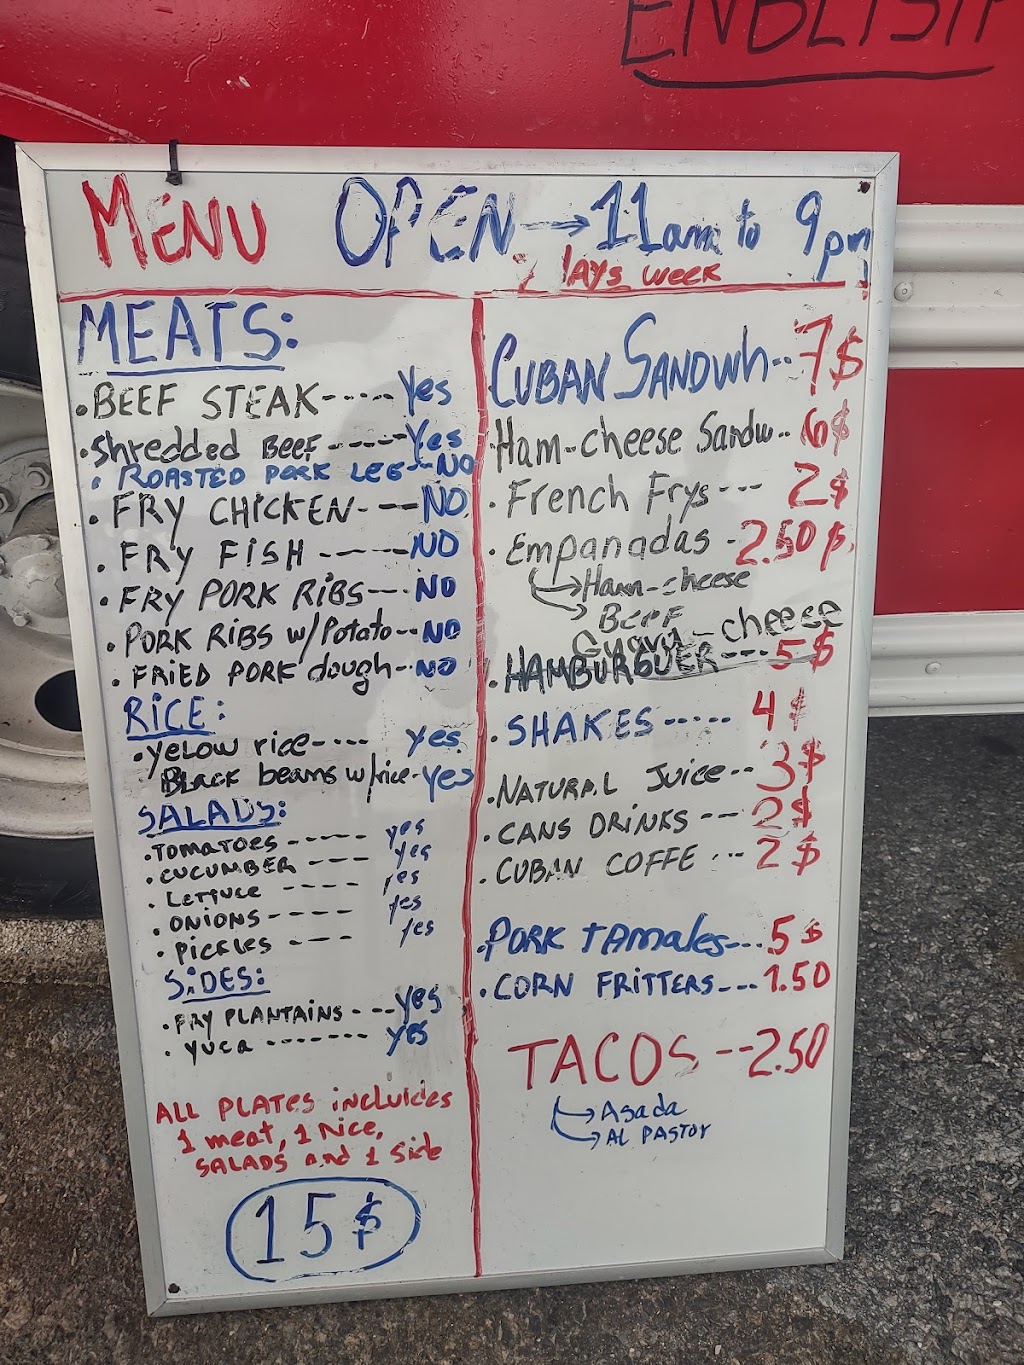 ENGLISH
MENU OPEN → 11am to 9pm
7 days week
MEATS:
. BEEF STEAK ----- Yes
. Shredded BEEF ----- Yes
. ROASTED PORK LEG -- NO
. FRY CHICKEN --- NO
. FRY FISH ----- NO
. FRY PORK RIBS --- NO
. PORK RIBS w/Potato -- NO
. FRIED PORK dough -- NO
RICE:
. Yelow rice ---- yes
Black beans w/rice - Yes
SALADS:
. TOMATOES ----- yes
. CUCUMBER ---- yes
. LETTUCE ---- yes
. ONIONS ---- yes
. PICKLES --- yes
SIDES:
. FRY PLANTAINS --- yes
. YUCA ------- yes
ALL PLATES incluides
1 meat, 1 rice,
SALADS and 1 side
15$
CUBAN SANDWH -- 7$
Ham-cheese Sandw -- 6$
. French Frys --- 2$
. Empanadas - 2.50$
→ Ham-cheese
→ BEEF
Guava-cheese
. HAMBURGUER --- 5$
. SHAKES ----- 4$
. NATURAL Juice -- 3$
. CANS DRINKS -- 2$
. CUBAN COFFE --- 2$
. PORK TAMALES --- 5$
. CORN FRITTERS --- 1.50
TACOS -- 2.50
→ Asada
→ AL PASTOR